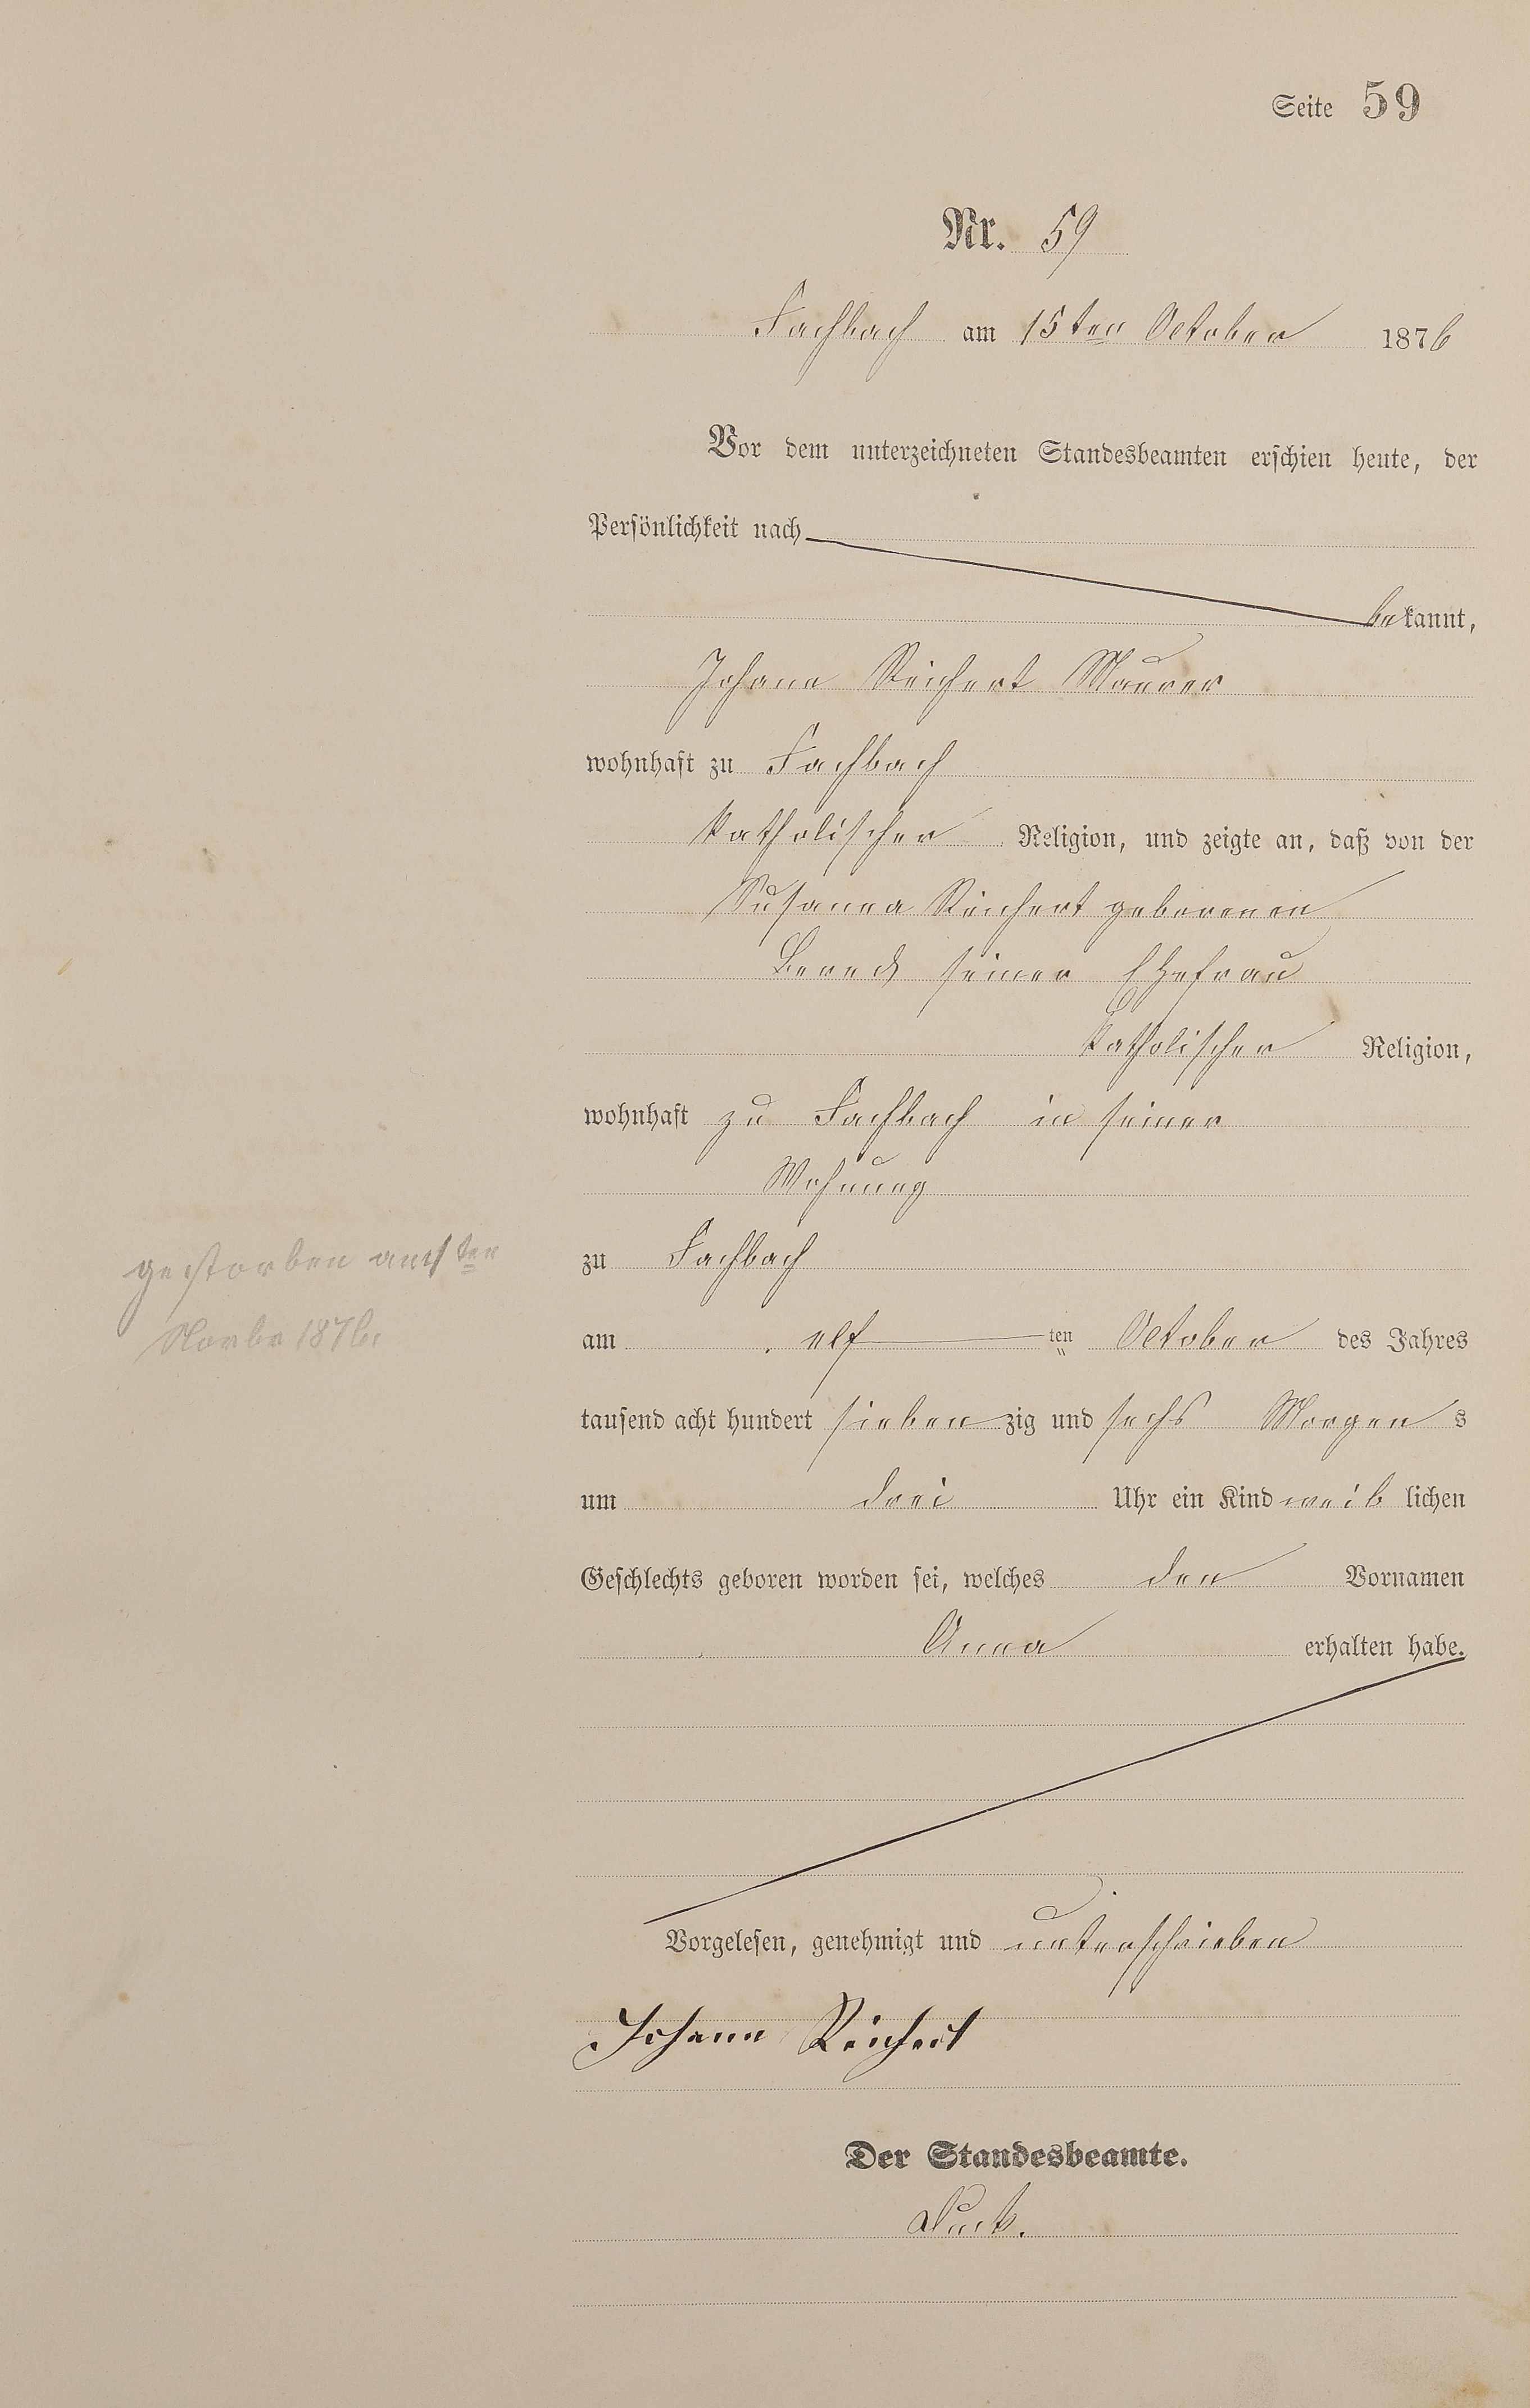 Seite 59
Nr. 59
Fachbach am 15ten October 1876
Vor dem unterzeichneten Standesbeamten erschien heute, der
Persönlichkeit nach
bekannt,
Johann Reichert Maurer
wohnhaft zu Fachbach
katholischer Religion, und zeigte an, daß von der
Susanna Reichert geborenen
seiner Ehefrau
katholischer Religion,
wohnhaft zu Fachbach in seiner
Wohnung
zu Fachbach
gestorben am 1ten
Novbr 1876.
am elf ten October des Jahres
tausend acht hundert siebenzig und sechs Morgens
um drei Uhr ein Kind weiblichen
Geschlechts geboren worden sei, welches den Vornamen
Anna erhalten habe.
Vorgelesen, genehmigt und unterschrieben
Johann Reichert
Der Standesbeamte.